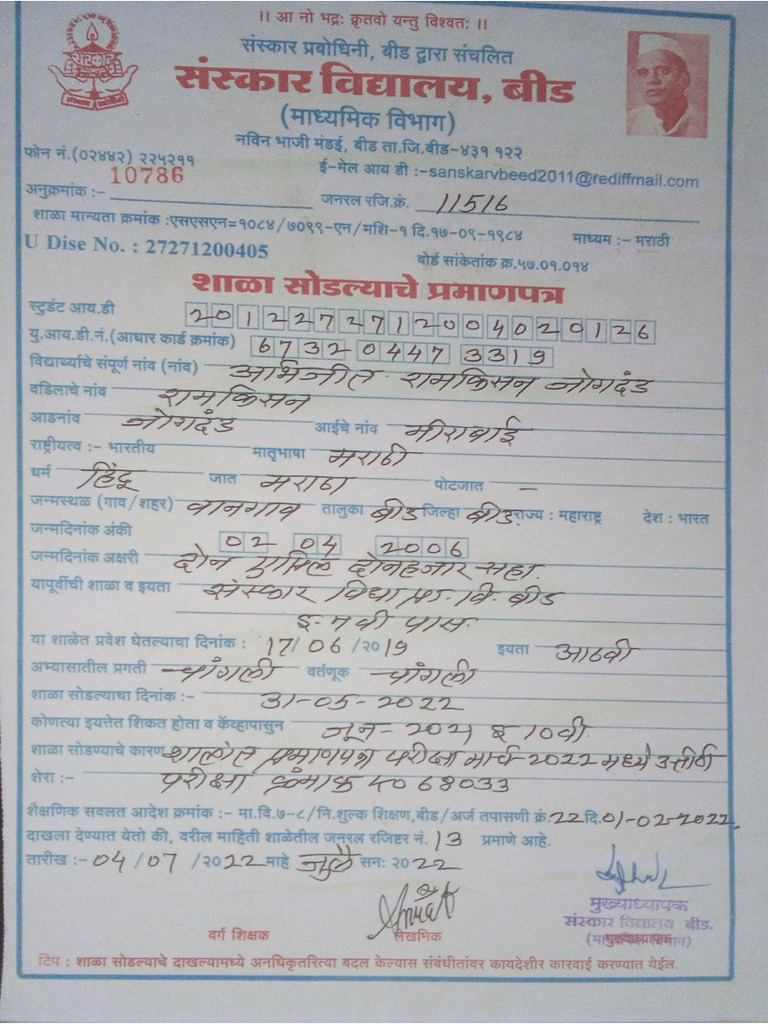 ।। आ नो भद्रः क्रृतवो यन्तु विश्वतः ।।
संस्कार प्रबोधिनी, बीड द्वारा संचलित
संस्कार विद्यालय, बीड
(माध्यमिक विभाग)
नविन भाजी मंडई, बीड ता.जि.बीड-४३१ १२२
फोन नं.(०२४४२) २२५२११
ई-मेल आय डी :-sanskarvbeed2011@rediffmail.com
अनुक्रमांक :- 10786 जनरल रजि.क्रं. 11516
शाळा मान्यता क्रमांक :एसएसएन=१०८४/७०९९-एन/मशि-१ दि.१७-०९-१९८४ माध्यम :- मराठी
U Dise No. : 27271200405 बोर्ड सांकेतांक क्र.५७.०१.०१४
शाळा सोडल्याचे प्रमाणपत्र
स्टुडंट आय.डी 2012272712004020126
यु.आय.डी.नं.(आधार कार्ड क्रमांक) 67320447 3319
विद्यार्थ्याचे संपूर्ण नांव (नांव) अभिजीत रामकिसन जोगदंड
वडिलाचे नांव रामकिसन
आडनांव जोगदंड आईचे नांव मीराबाई
राष्ट्रीयत्व :- भारतीय मातृभाषा मराठी
धर्म हिंदू जात मराठा पोटजात —
जन्मस्थळ (गाव/शहर) वानगाव तालुका बीड जिल्हा बीड राज्य : महाराष्ट्र देश : भारत
जन्मदिनांक अंकी 02 04 2006
जन्मदिनांक अक्षरी दोन एप्रिल दोनहजार सहा.
यापूर्वीची शाळा व इयत्ता संस्कार विद्या प्रा. वि. बीड
इ. ७वी पास
या शाळेत प्रवेश घेतल्याचा दिनांक : 17/06/२०19 इयता आठवी
अभ्यासातील प्रगती चांगली वर्तणूक चांगली
शाळा सोडल्याचा दिनांक :- 31-05-2022
कोणत्या इयत्तेत शिकत होता व केंव्हापासुन जून-2021 इ 10वी
शाळा सोडण्याचे कारण शालांत प्रमाणपत्र परीक्षा मार्च 2022 मध्ये उत्तीर्ण
शेरा :- परीक्षा क्रमांक
शैक्षणिक सवलत आदेश क्रमांक :- मा.वि.७-८/नि.शुल्क शिक्षण,बीड/अर्ज तपासणी क्रं.22 दि.01-02-2022.
दाखला देण्यात येतो की, वरील माहिती शाळेतील जनरल रजिष्टर नं. 13 प्रमाणे आहे.
तारीख :- 04/07/२०22 माहे जुलै सनः २०22
मुख्याध्यापक
संस्कार विद्यालय बीड.
वर्ग शिक्षक लेखमिक
टिप : शाळा सोडल्याचे दाखल्यामध्ये अनधिकृतरित्या बदल केल्यास संबंधीतांवर कायदेशीर कारवाई करण्यात येईल.